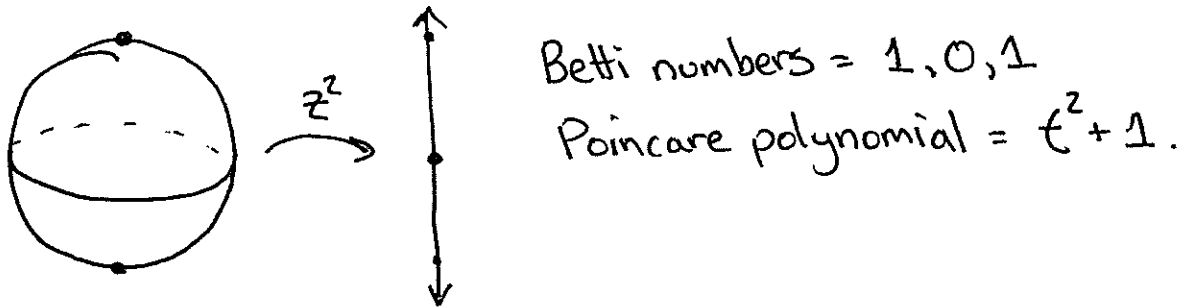 z²
Betti numbers = 1, 0, 1
Poincare polynomial = t² + 1.